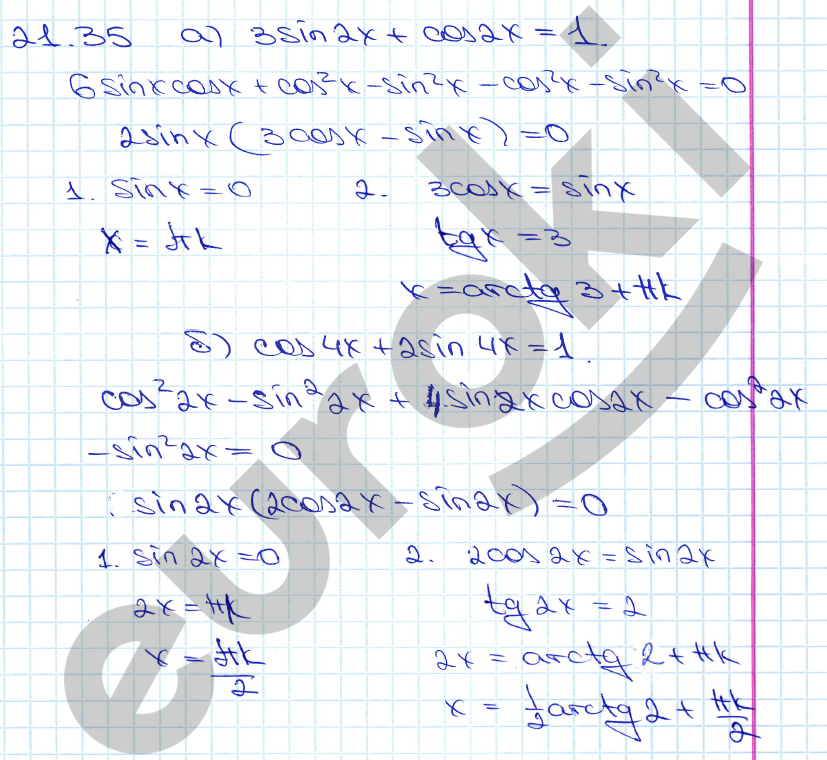 21.35 а) 3sin2x + cos2x = 1.
6sinxcosx + cos²x - sin²x - cos²x - sin²x = 0
2sinx(3cosx - sinx) = 0
1. sinx = 0 2. 3cosx = sinx
x = πk tgx = 3
x = arctg 3 + πk
б) cos4x + 2sin4x = 1.
cos²2x - sin²2x + 4sin2xcos2x - cos²2x
- sin²2x = 0
sin2x(2cos2x - sin2x) = 0
1. sin2x = 0 2. 2cos2x = sin2x
2x = πk tg2x = 2
x = πk/2 2x = arctg 2 + πk
x = 1/2 arctg 2 + πk/2
euroki